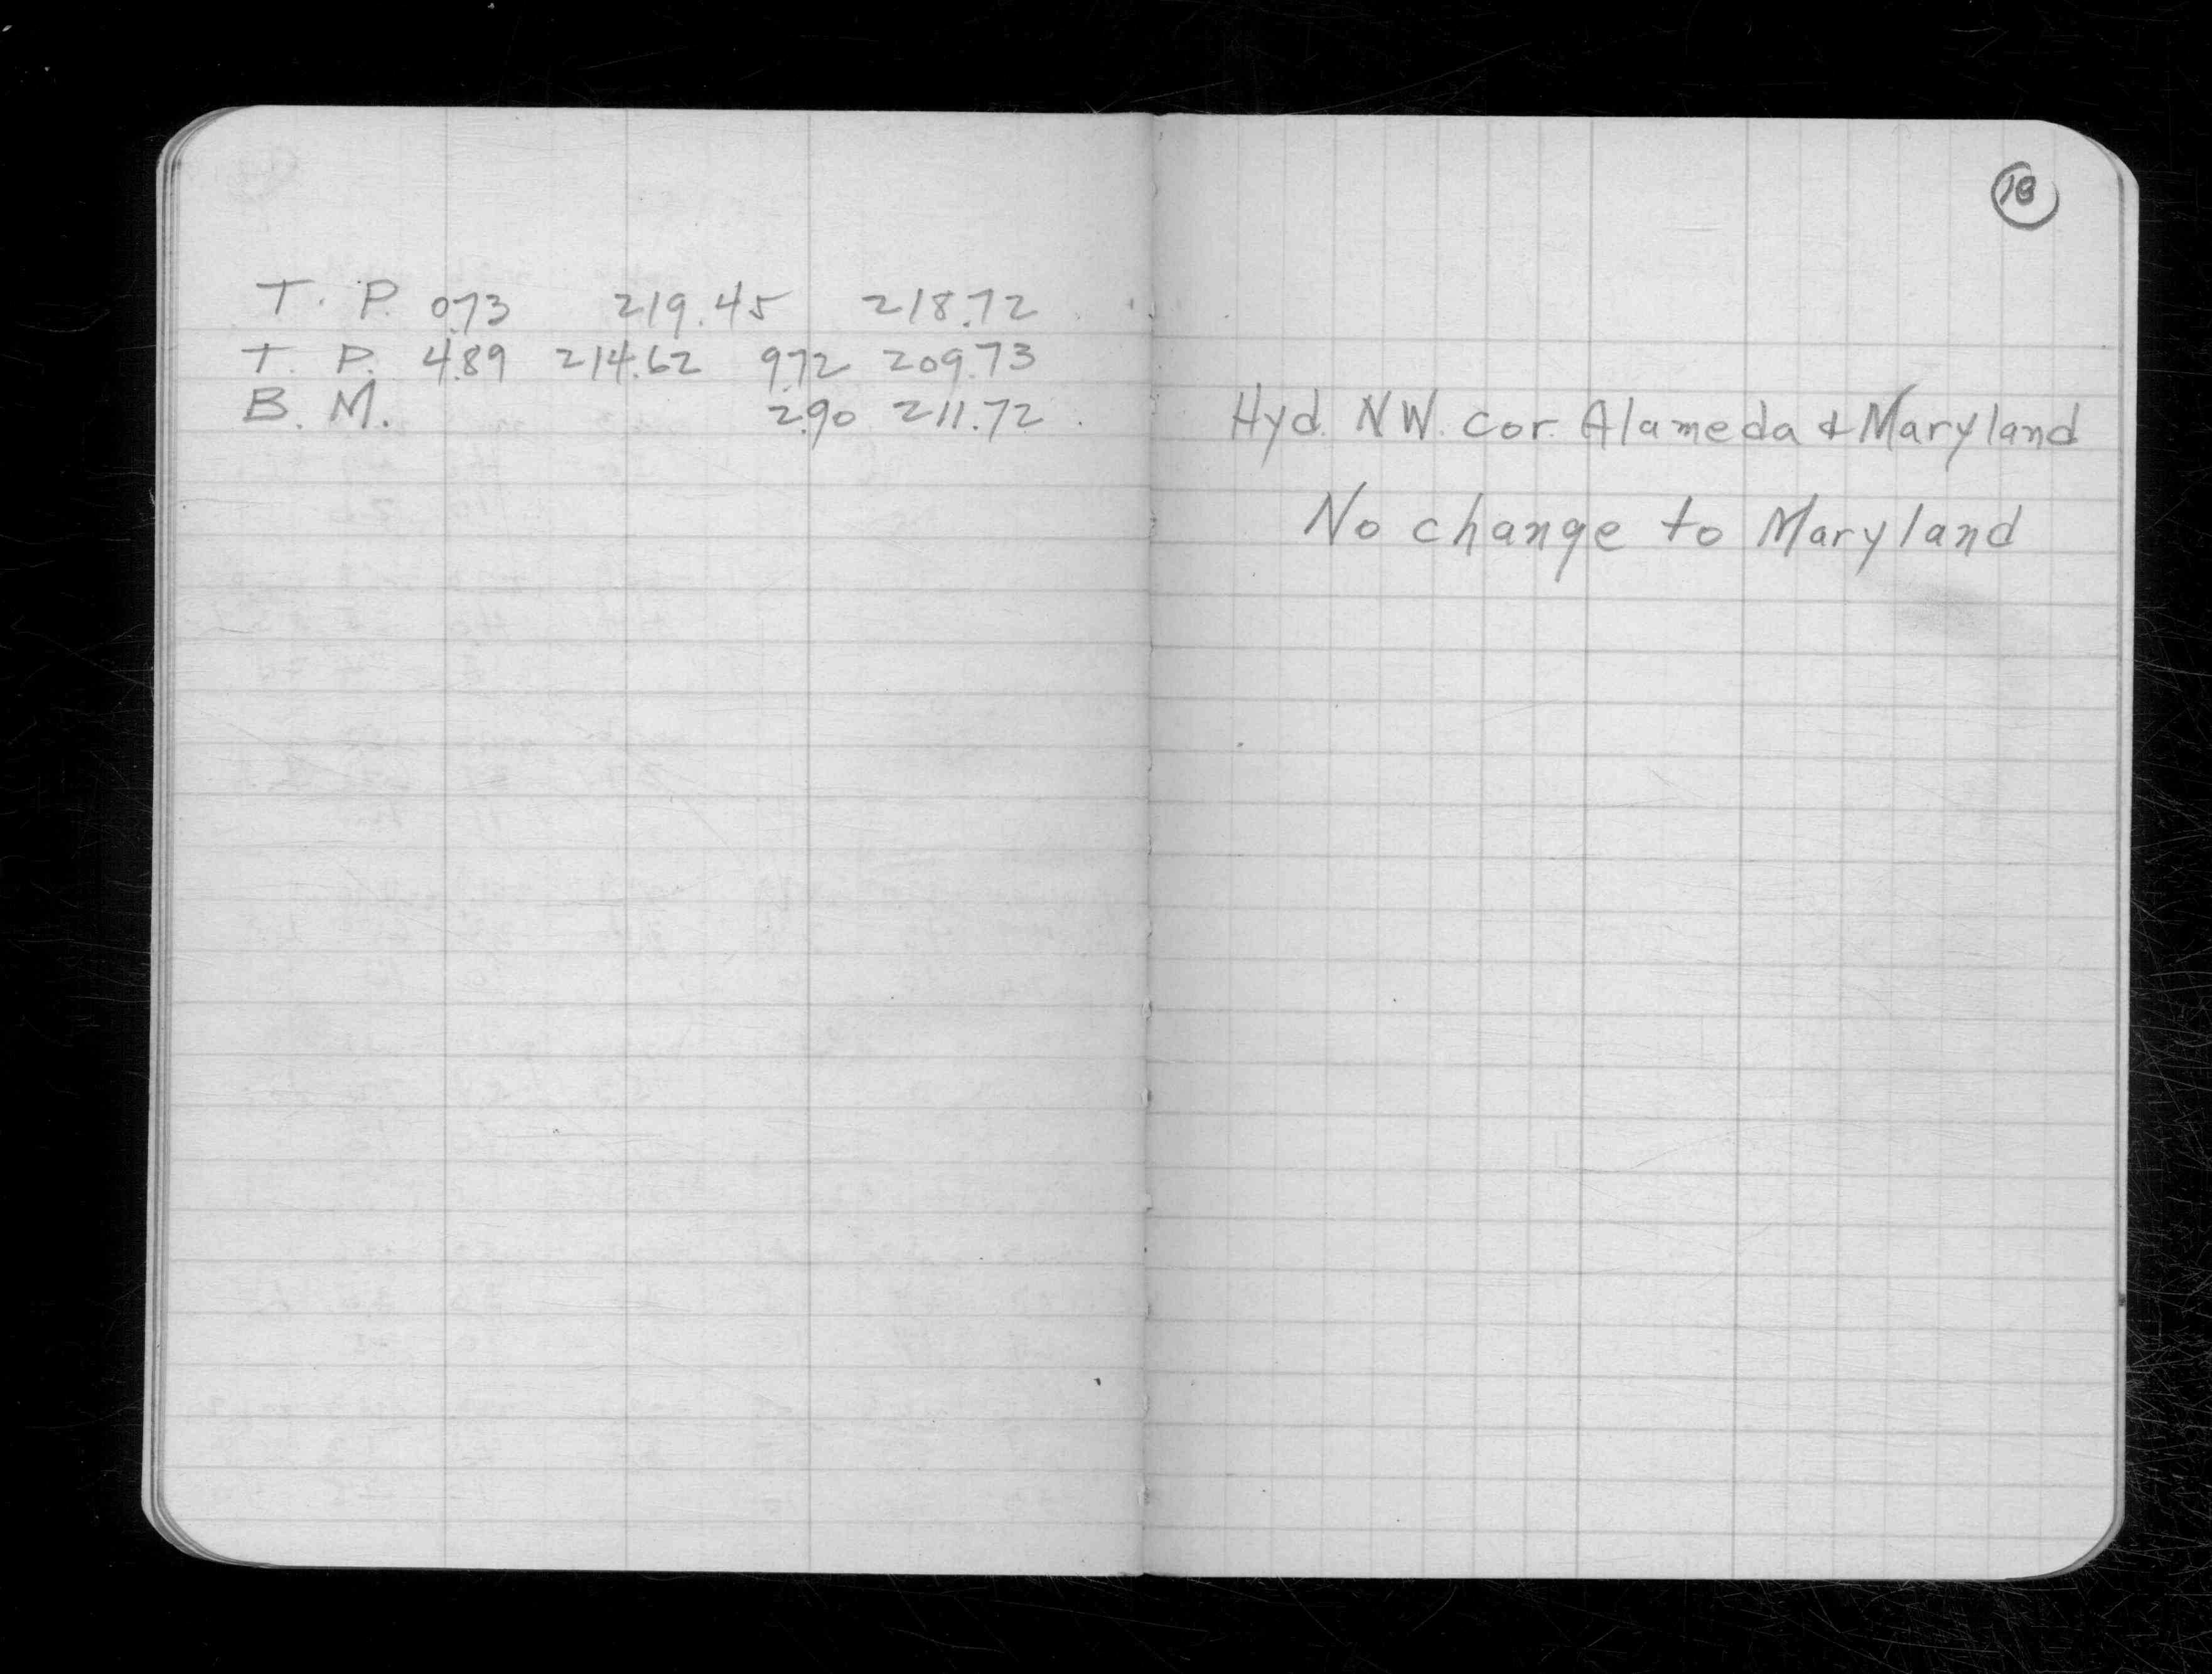 18
T. P. 0.73 219.45 218.72
T. P. 4.89 214.62 9.72 209.73
B. M. 2.90 211.72
Hyd. NW. cor. Alameda & Maryland
No change to Maryland